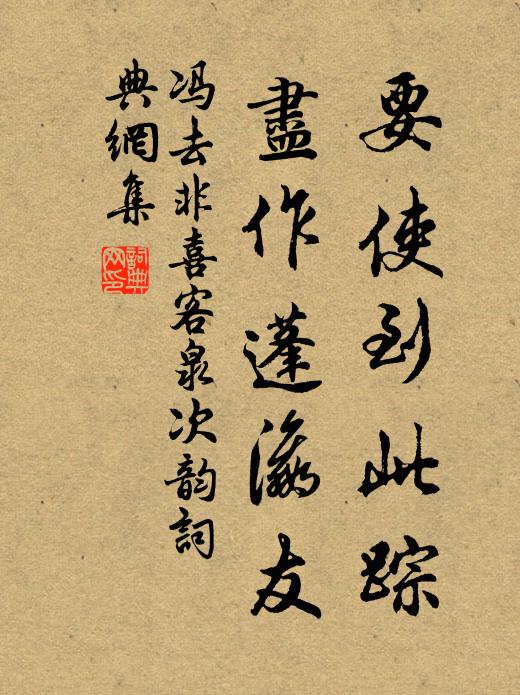 要使到此踪
盡作蓬瀛友
冯去非喜客泉次韵詞
典網集
詞典
网印